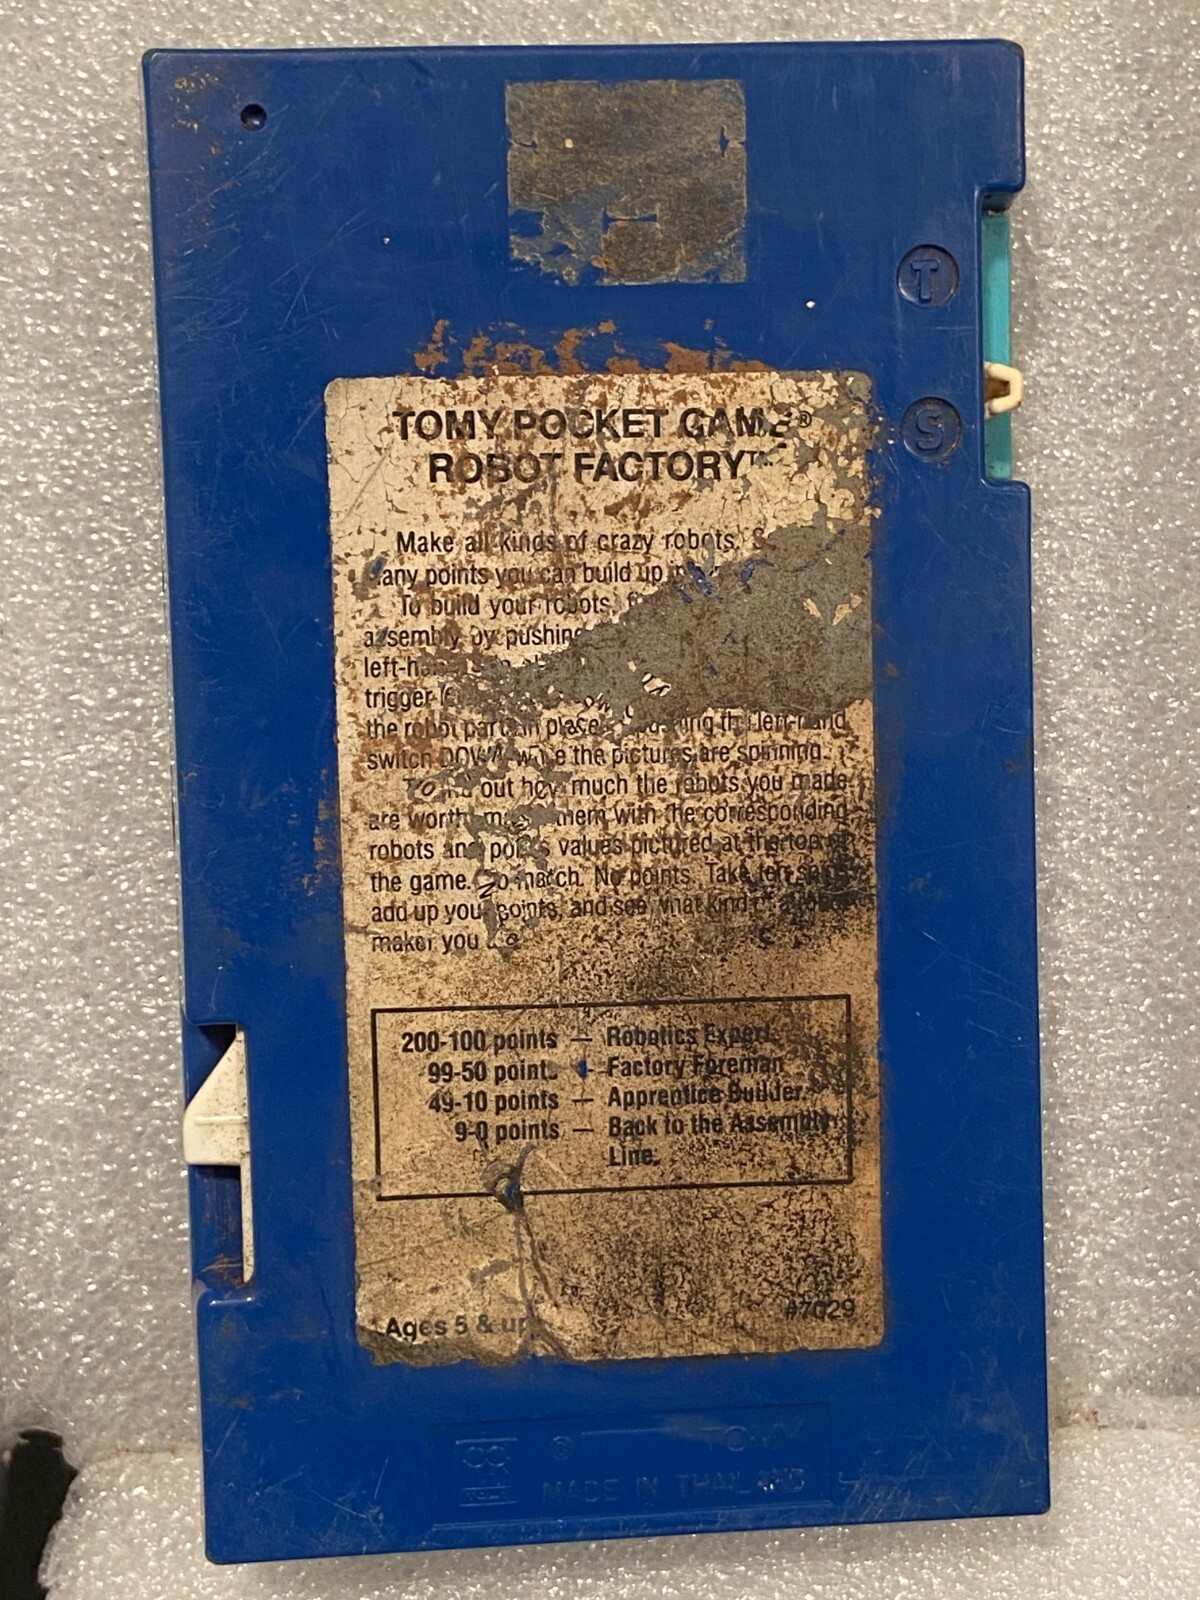 T
S
TOMY POCKET GAME®
ROBOT FACTORY™
Make all kinds of crazy robots.
any points you can build up
To build your robots,
assembly by pushing
left-ha
trigger
the robot part in place pushing the left-hand
switch DOWN while the pictures are spinning.
To out how much the robots you made
are worth them with the corresponding
robots and points values pictured at the top of
the game. No match. No points. Take ten
add up your points, and see what kind of a robot
maker you
200-100 points — Robotics Expert.
99-50 points — Factory Foreman
49-10 points — Apprentice Builder.
9-0 points — Back to the Assembly
Line.
Ages 5 & up
#7029
© TOMY
MADE IN THAILAND